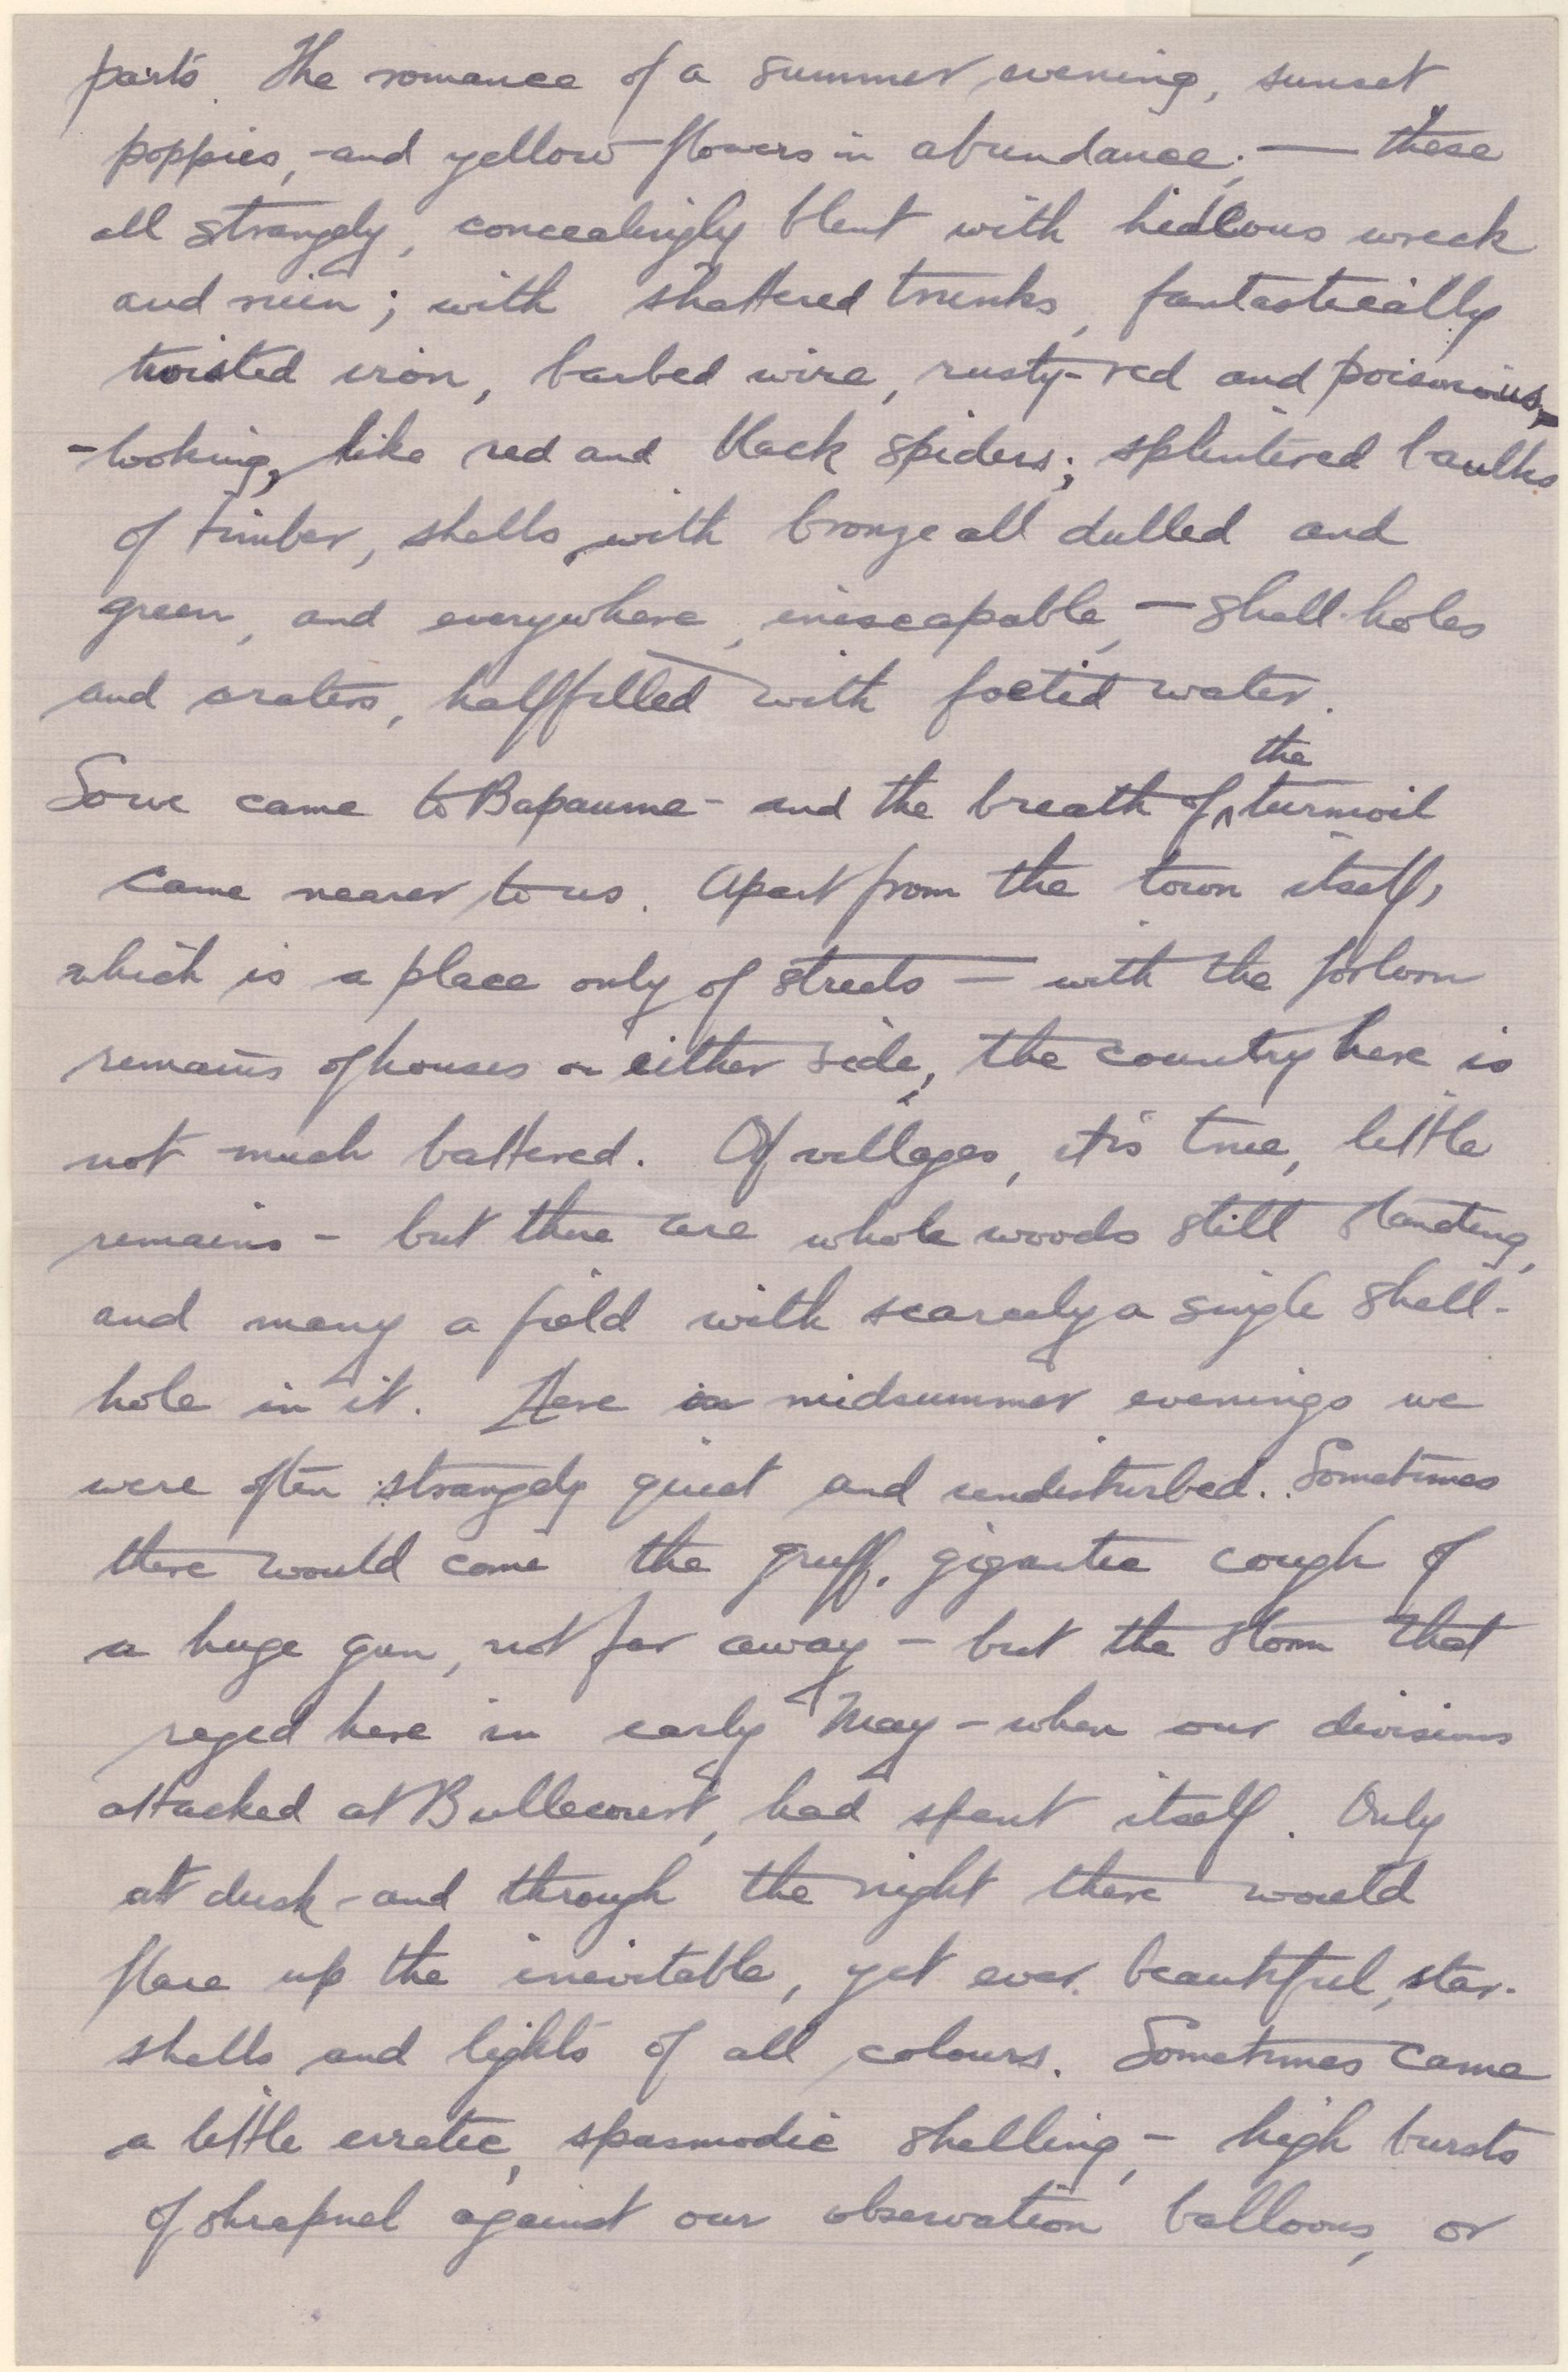 parts. The romance of a summer evening, sunset,
poppies, and yellow flowers in abundance; — these
all strangely, concealingly blent with hideous wreck
and ruin; with shattered trunks, fantastically
twisted iron, barbed wire, rusty-red and poisonous,-
-looking, like red and black spiders; splintered baulks
of timber, shells, with bronze all dulled and
green, and everywhere, inescapable, — shell-holes
and craters, halffilled with foetid water.
So we came to Bapaume - and the breath of ^ the turmoil
came nearer to us. Apart from the town itself,
which is a place only of streets — with the forlorn
remains of houses on either side, the country here is
not much battered. Of villages, it is true, little
remains - but there are whole woods still standing,
and many a field with scarcely a single shell-
hole in it. Here in midsummer evenings we
were often strangely quiet and undisturbed. Sometimes
there would come the gruff, gigantic cough of
a huge gun, not far away - but the storm that
raged here in early May - when our divisions
attacked at Bullecourt, had spent itself. Only
at dusk and through the night there would
flare up the inevitable, yet ever beautiful, star-
shells and lights of all colours. Sometimes came
a little erratic, spasmodic shelling, - high bursts
of shrapnel against our observation balloons, or